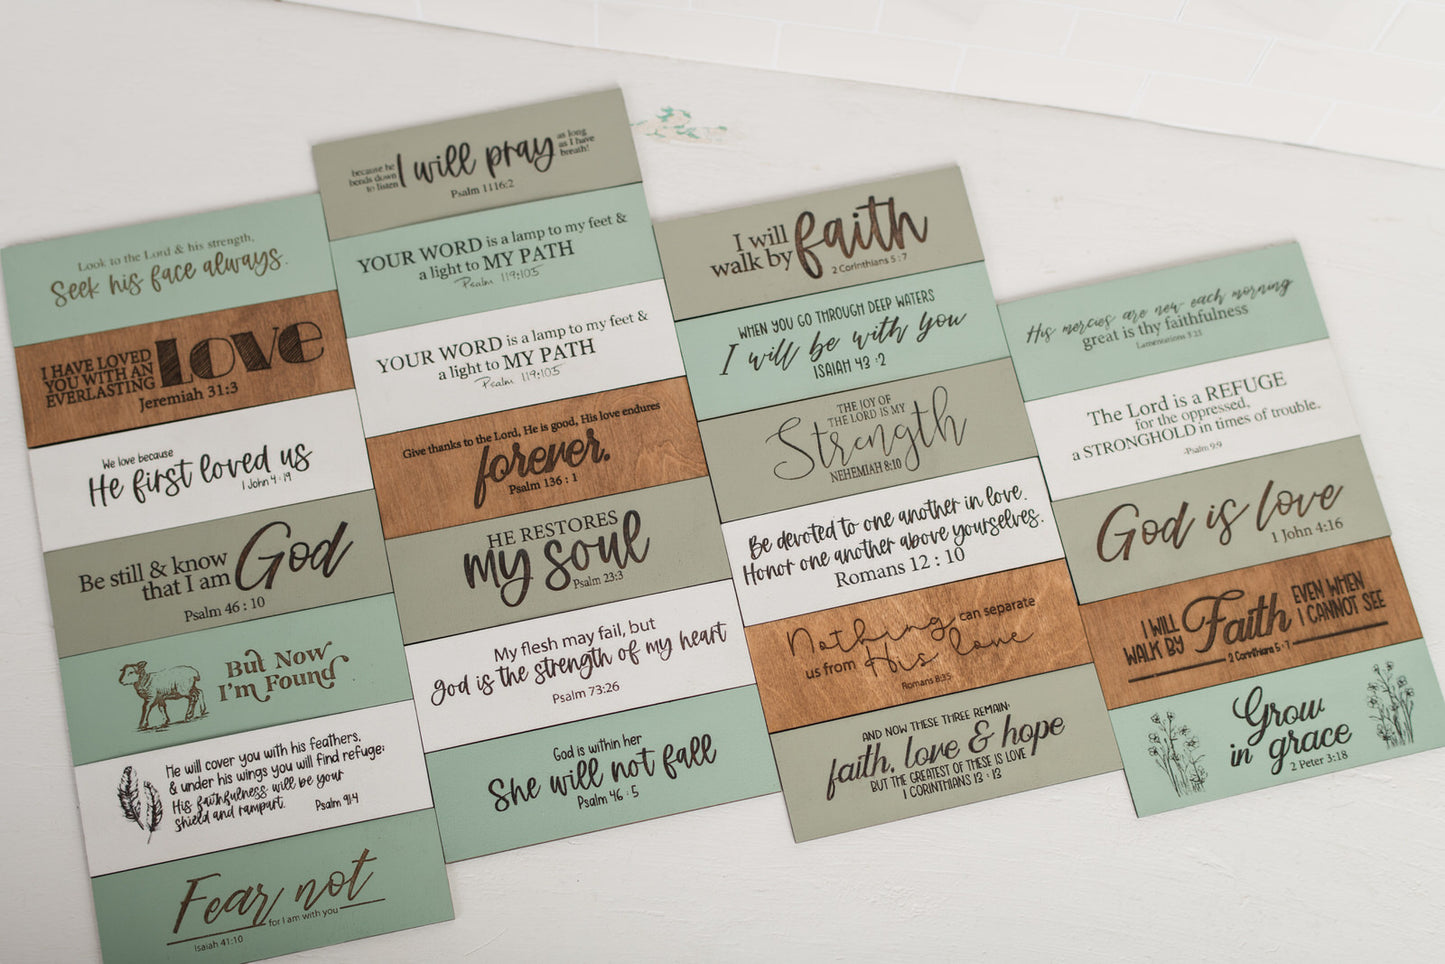 Look to the Lord & his strength,
Seek his face always.
I HAVE LOVED
YOU WITH AN
EVERLASTING
LOVE
Jeremiah 31:3
We love because
He first loved us
1 John 4:19
Be still & know
that I am
God
Psalm 46 : 10
But Now
I'm Found
He will cover you with his feathers,
& under his wings you will find refuge;
His faithfulness will be your
shield and rampart.
Psalm 91:4
Fear not
for I am with you
Isaiah 41:10
because he
bends down
to listen
I will pray
as long
as I have
breath!
Psalm 1116:2
YOUR WORD is a lamp to my feet &
a light to MY PATH
Psalm 119:105
YOUR WORD is a lamp to my feet &
a light to MY PATH
Psalm 119:105
Give thanks to the Lord, He is good, His love endures
forever.
Psalm 136 : 1
HE RESTORES
my soul
Psalm 23:3
My flesh may fail, but
god is the strength of my heart
Psalm 73:26
God is within her
She will not fall
Psalm 46 : 5
I will
walk by
faith
2 Corinthians 5 : 7
WHEN YOU GO THROUGH DEEP WATERS
I will be with you
ISAIAH 43 :2
THE JOY OF
THE LORD IS MY
Strength
NEHEMIAH 8:10
Be devoted to one another in love.
Honor one another above yourselves.
Romans 12 : 10
Nothing can separate
us from His love
Romans 8:35
AND NOW THESE THREE REMAIN:
faith, love & hope
BUT THE GREATEST OF THESE IS LOVE
1 CORINTHIANS 13 : 13
His mercies are new each morning
great is thy faithfulness
Lamentations 3:23
The Lord is a REFUGE
for the oppressed,
a STRONGHOLD in times of trouble.
-Psalm 9:9
God is love
1 John 4:16
I WILL
WALK BY
Faith
EVEN WHEN
I CANNOT SEE
2 Corinthians 5 : 7
Grow
in grace
2 Peter 3:18